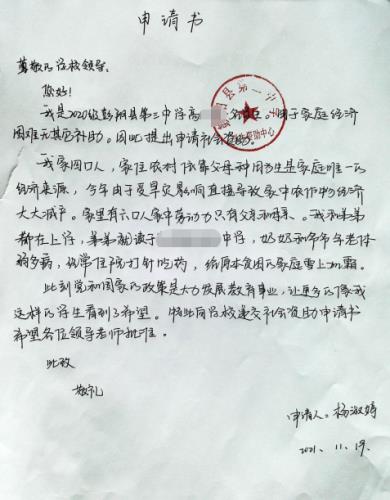 申请书
尊敬的学校领导:
您好!
我是2020级彭阳县第三中学高 由于家庭经济
困难无其它补助。因此提出申请社会资助。
我家四口人,家住农村依靠父母种田为生是家庭唯一的
经济来源,今年由于受旱灾影响直接导致家中农作物经济
大大减产。家里有六口人家中劳动力只有父亲和母亲。我和弟弟
都在上学,弟弟就读于 中学,奶奶和爷爷年老体
弱多病,经常住院打针吃药,给原本贫困的家庭雪上加霜。
此刻党和国家的政策是大力发展教育事业,让更多的像我
这样的学生看到了希望。特此向学校递交社会资助申请书
希望各位领导老师批准。
此致
敬礼
申请人:杨淑婷
2021.11.19.